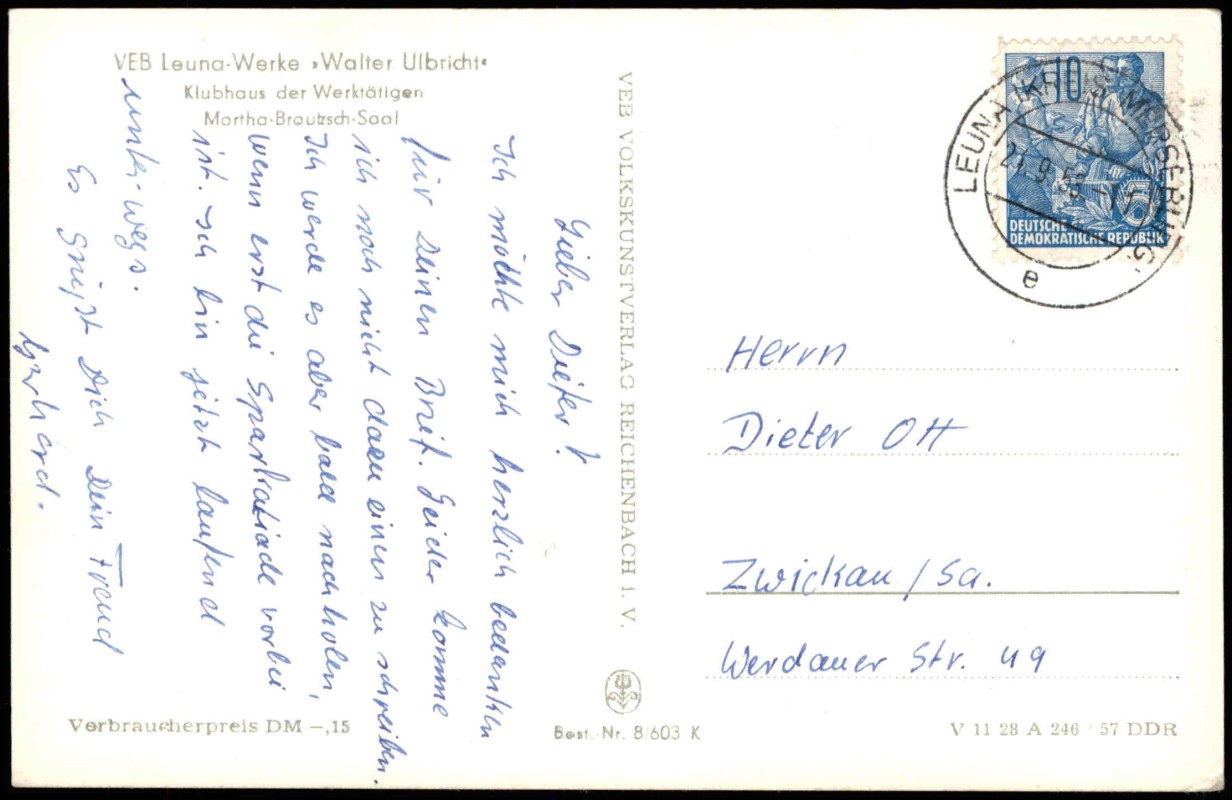 VEB Leuna-Werke »Walter Ulbricht«
Klubhaus der Werktätigen
Martha-Brautzsch-Saal
Lieber Dieter!
Ich möchte mich herzlich bedanken
für Deinen Brief. Leider komme
ich noch nicht dazu einen zu schreiben.
Ich werde es aber bald nachholen,
wenn erst die Spartakiade vorbei
ist. Ich bin jetzt laufend
unter-wegs.
Es grüßt Dich Dein Freund
Gerhard.
VEB VOLKSKUNSTVERLAG REICHENBACH i. V.
10
5
DEUTSCHE
DEMOKRATISCHE REPUBLIK
LEUNA (KR MERSEBURG)
e
Herrn
Dieter Ott
Zwickau / Sa.
Werdauer Str. 49
Verbraucherpreis DM –,15
Best.-Nr. 8/603 K
V 11 28 A 246 / 57 DDR